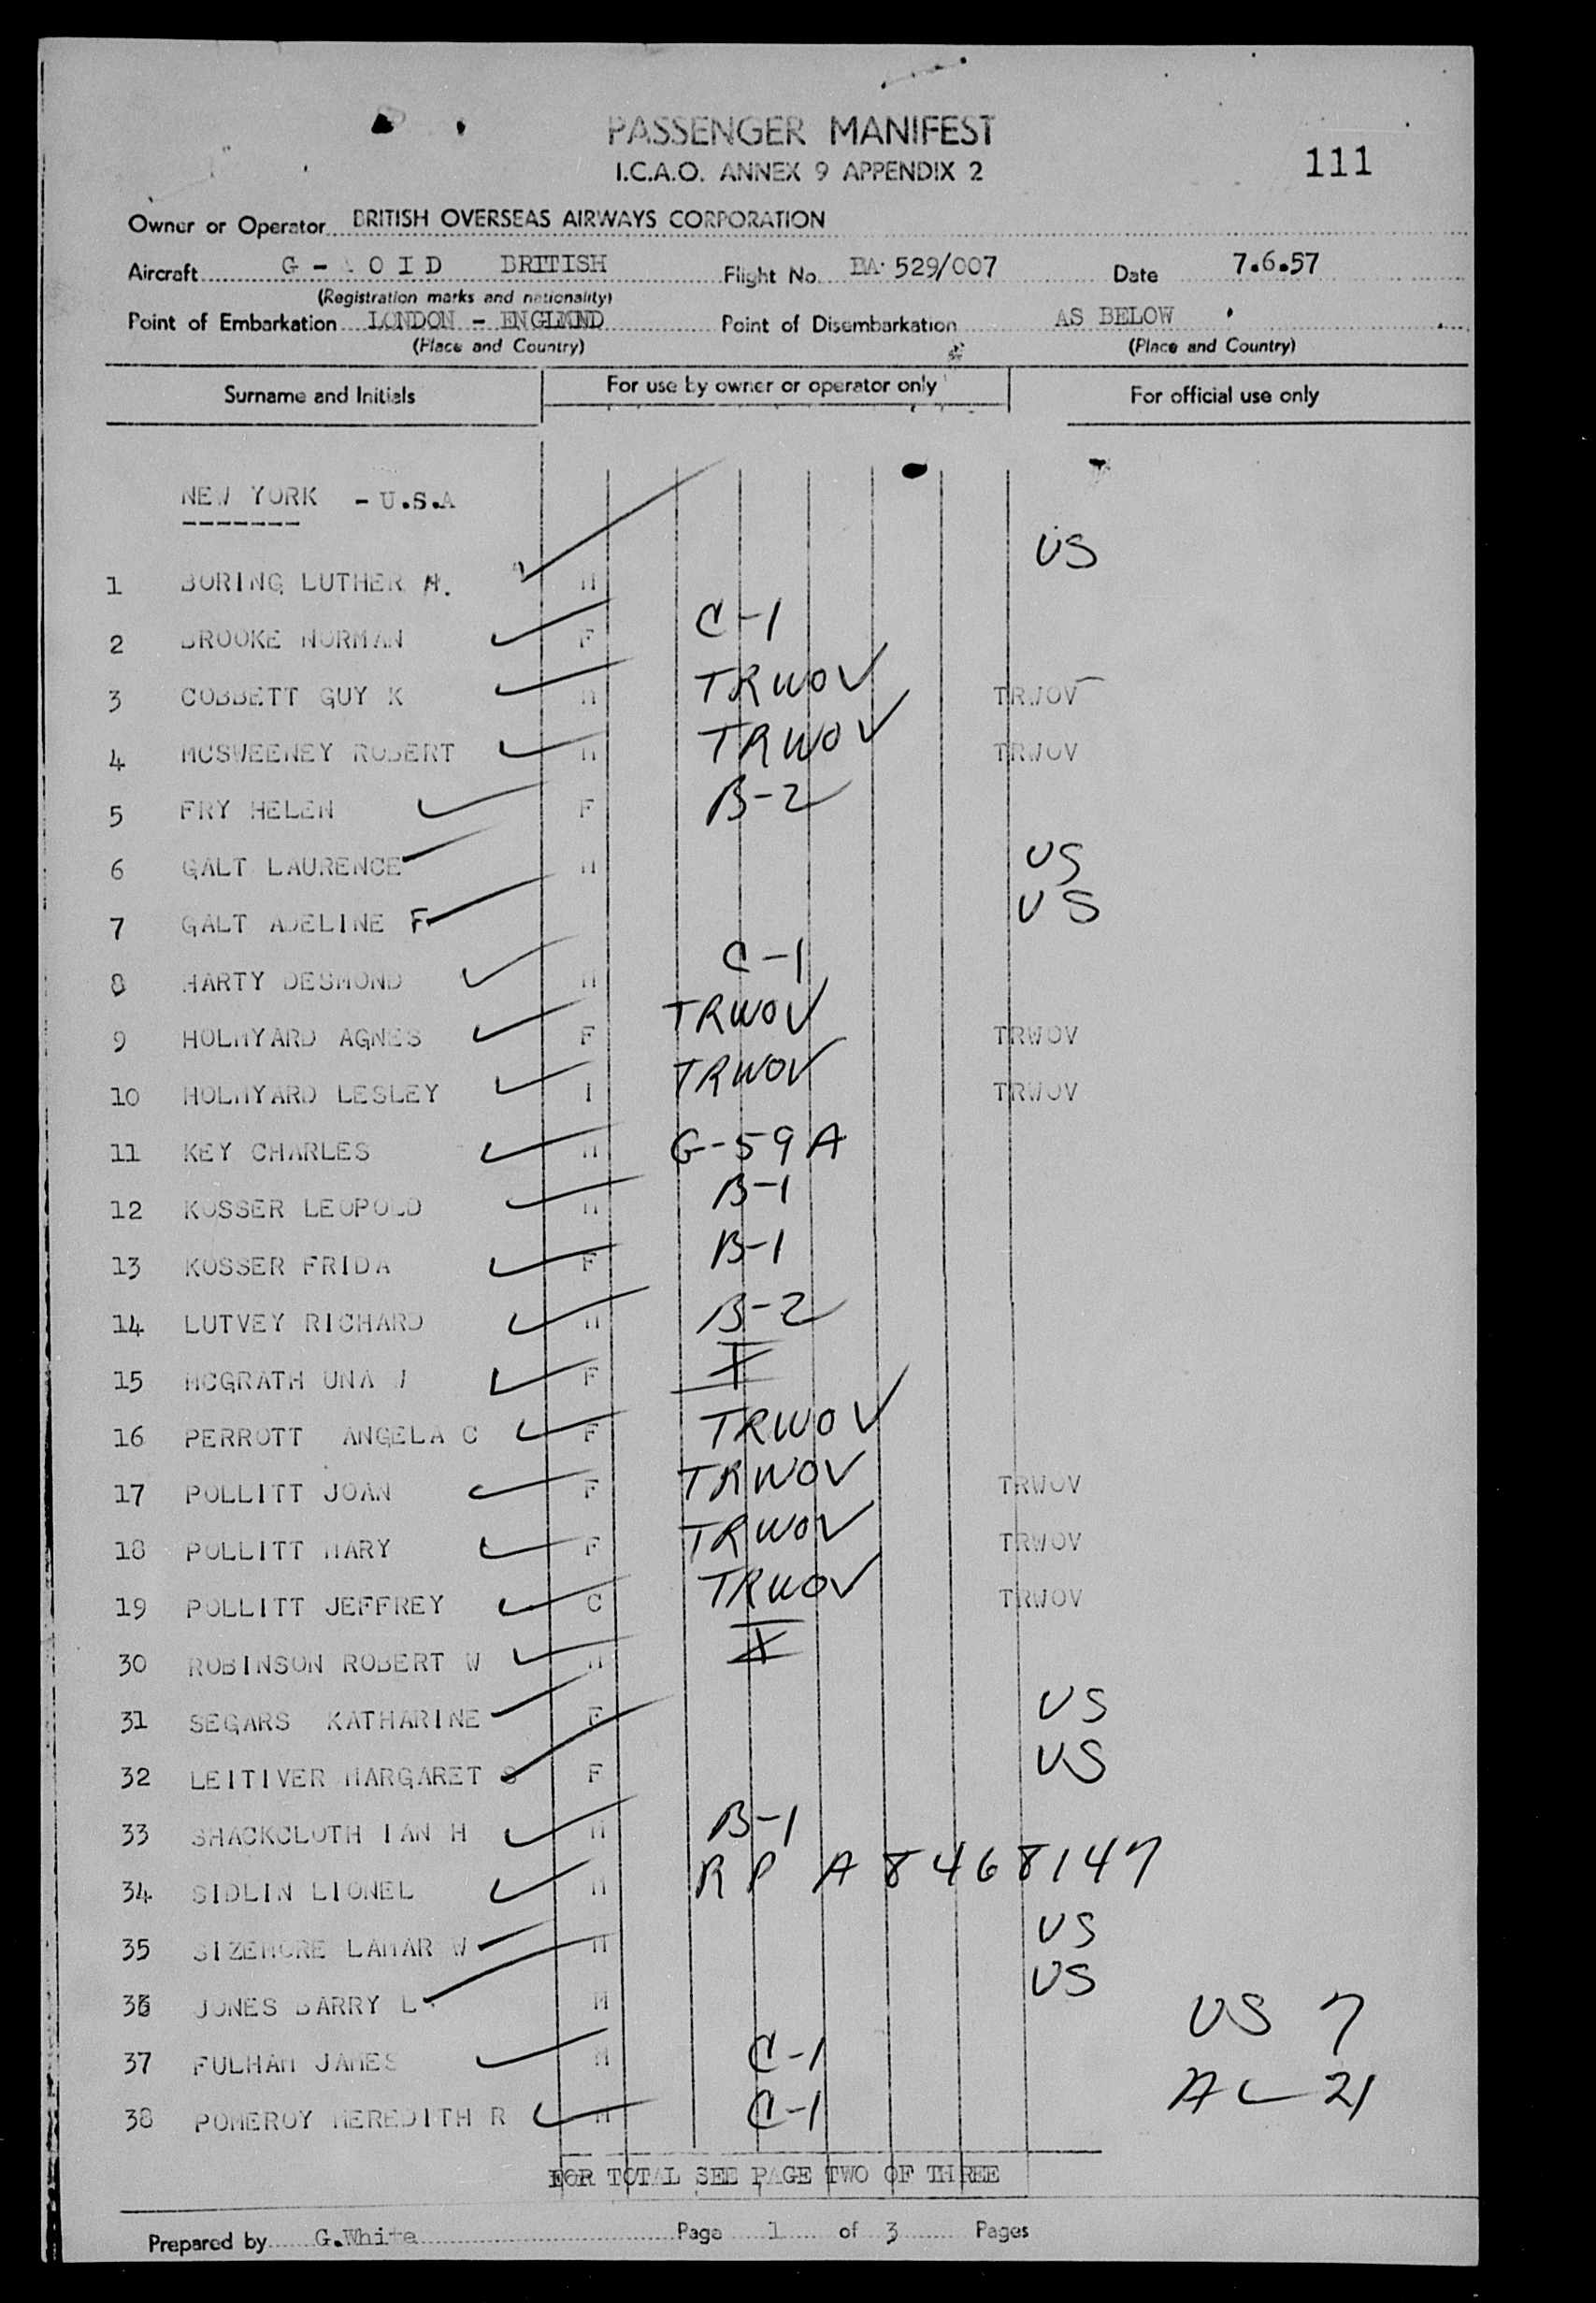 PASSENGER MANIFEST
I.C.A.O. ANNEX 9 APPENDIX 2
111
Owner or Operator BRITISH OVERSEAS AIRWAYS CORPORATION
Aircraft G - A O I D BRITISH Flight No. BA 529/007 Date 7.6.57
(Registration marks and nationality)
Point of Embarkation LONDON - ENGLAND Point of Disembarkation AS BELOW
(Place and Country) (Place and Country)
Surname and Initials For use by owner or operator only For official use only
NEW YORK - U.S.A
1 BORING LUTHER H. M US
2 BROOKE NORMAN F C-1
3 COBBETT GUY K M TRWOV TRWOV
4 MCSWEENEY ROBERT M TRWOV TRWOV
5 FRY HELEN F B-2
6 GALT LAURENCE M US
7 GALT ADELINE F US
8 HARTY DESMOND M C-1
9 HOLMYARD AGNES F TRWOV TRWOV
10 HOLMYARD LESLEY I TRWOV TRWOV
11 KEY CHARLES M G-59A
12 KOSSER LEOPOLD M B-1
13 KOSSER FRIDA F B-1
14 LUTVEY RICHARD M B-2
15 MCGRATH UNA F I
16 PERROTT ANGELA C F TRWOV
17 POLLITT JOAN F TRWOV TRWOV
18 POLLITT MARY F TRWOV TRWOV
19 POLLITT JEFFREY C TRWOV TRWOV
30 ROBINSON ROBERT W M I
31 SEGARS KATHARINE F US
32 LEITIVER MARGARET S F US
33 SHACKCLOTH IAN H M B-1
34 SIDLIN LIONEL M RP A8468147
35 SIZEMORE LAMAR W M US
36 JONES BARRY L M US
US 7
37 FULHAM JAMES M C-1
AL 21
38 POMEROY MEREDITH R M C-1
FOR TOTAL SEE PAGE TWO OF THREE
Prepared by G.White Page 1 of 3 Pages